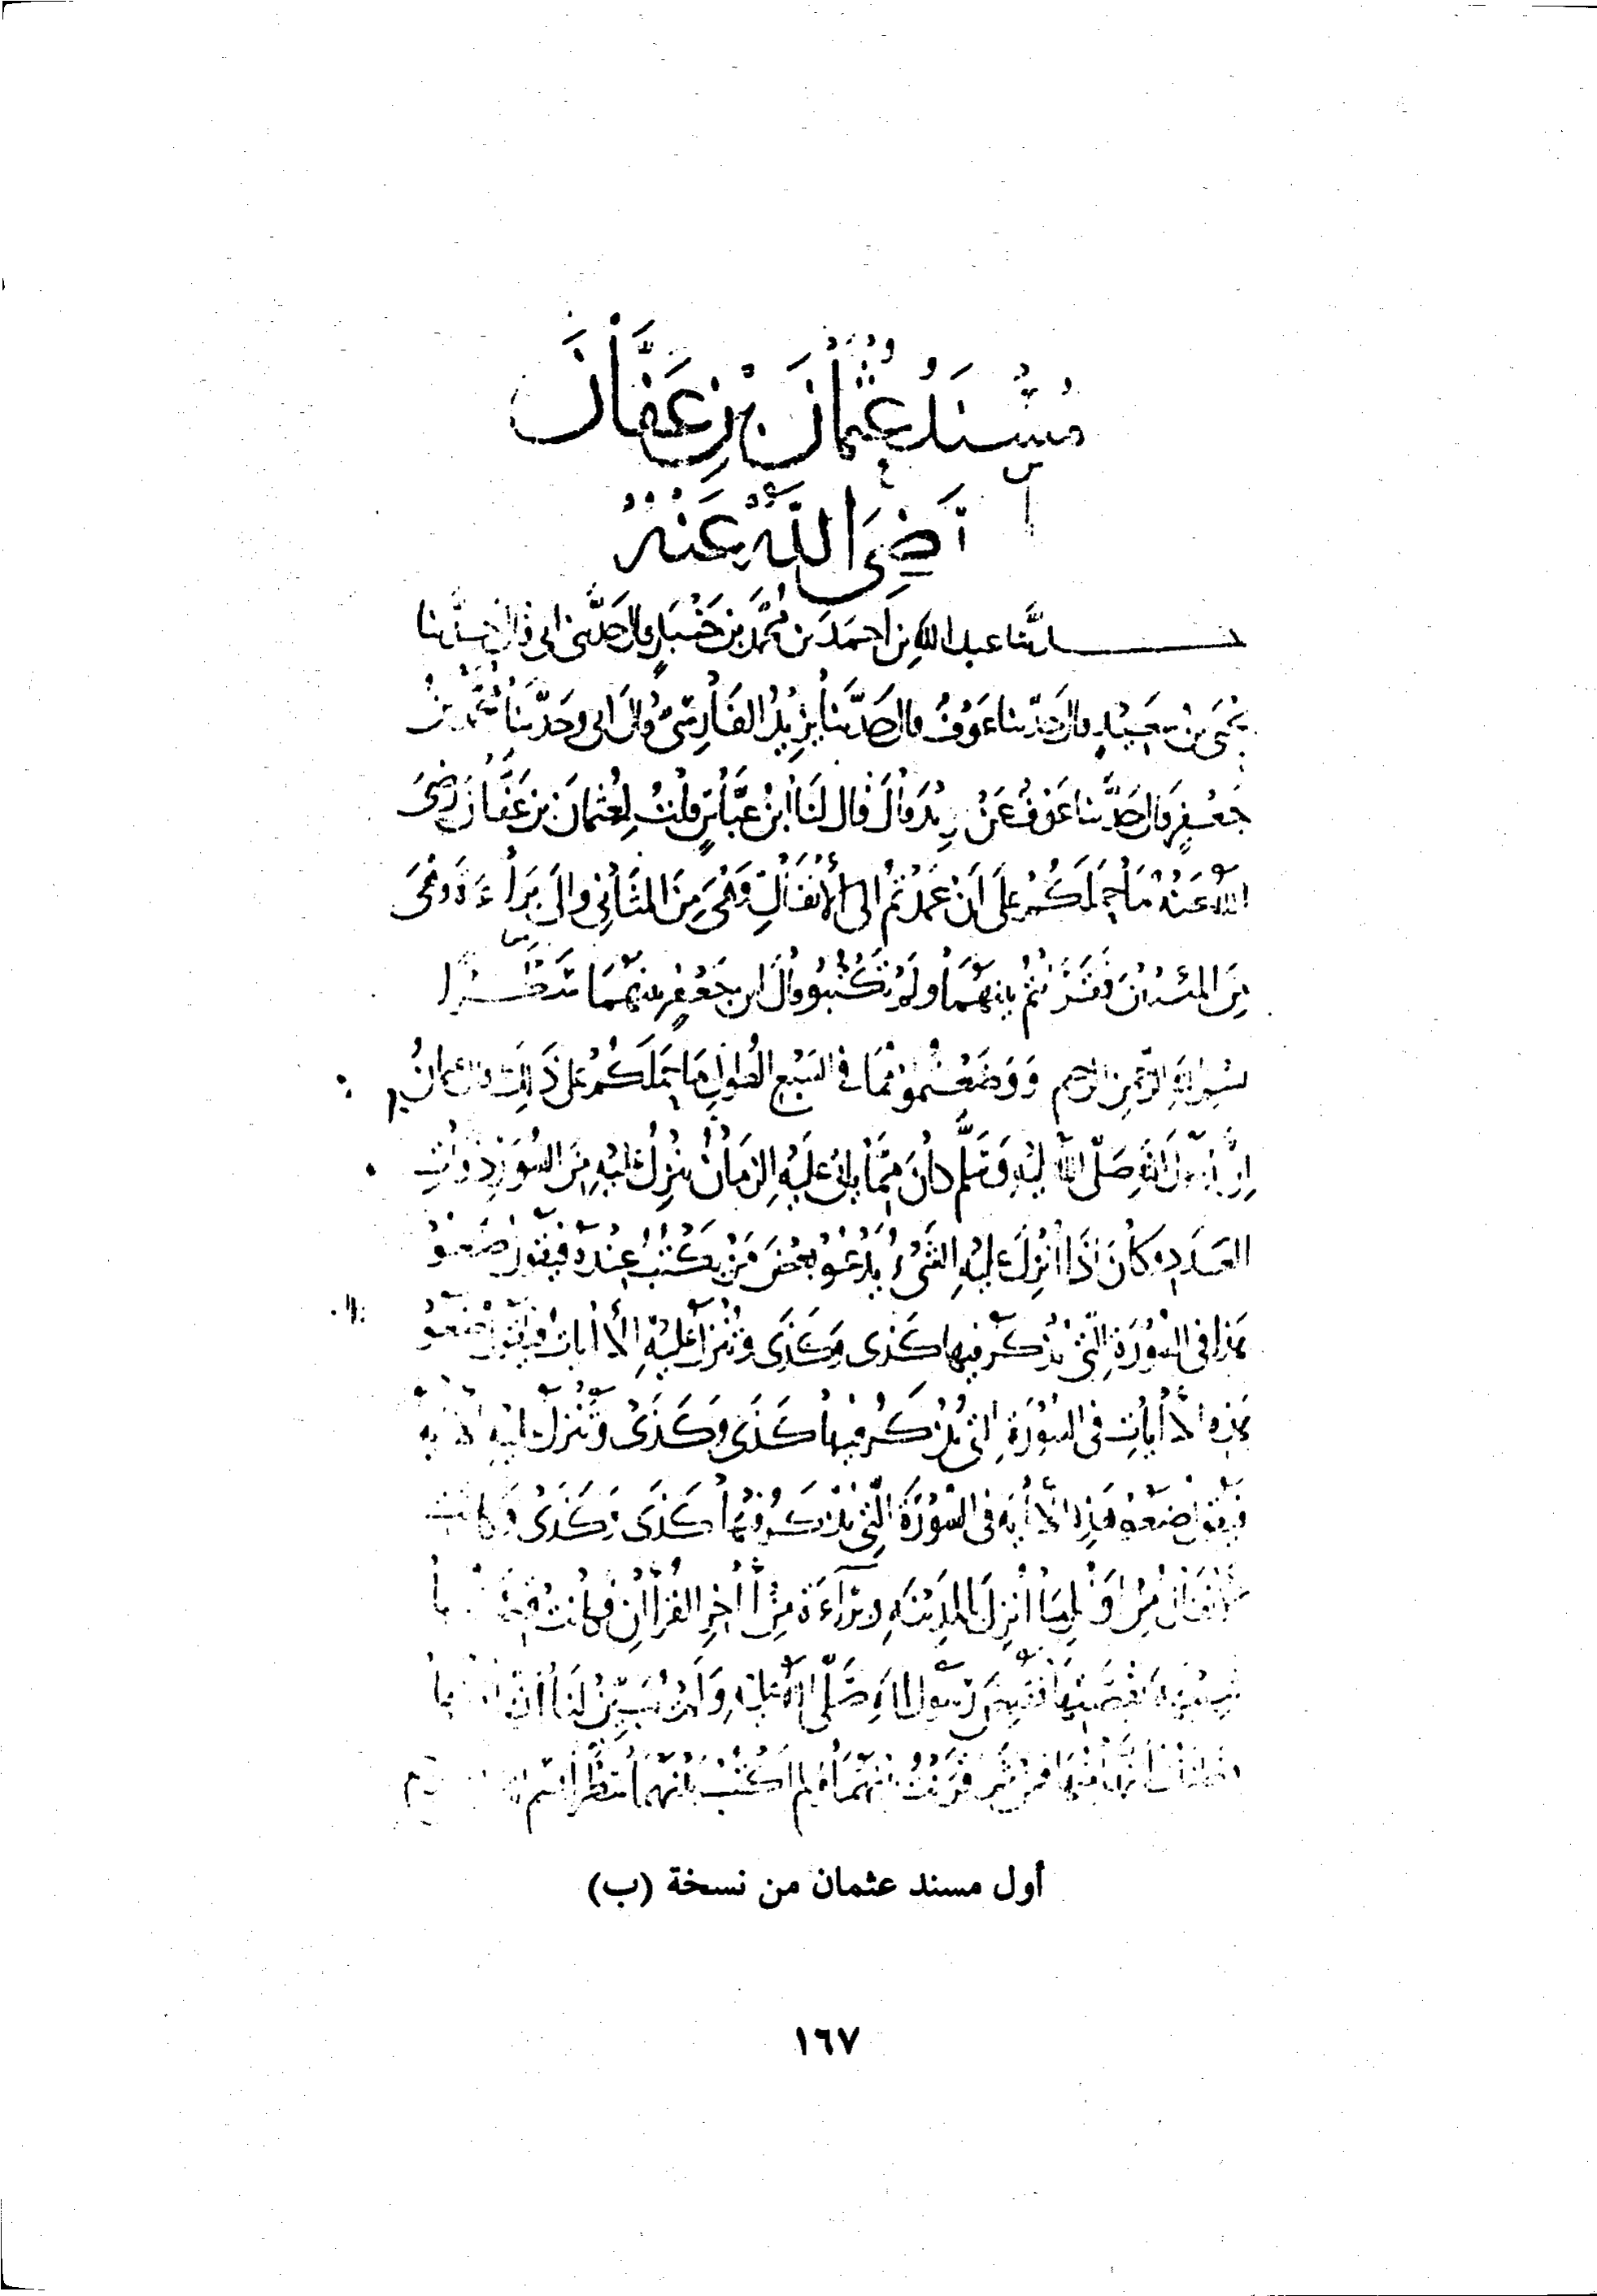 مُسْنَدُ عُثْمَانَ بْنِ عَفَّانَ
رَضِيَ اللَّهُ عَنْهُ
حدثنا عبد الله بن احمد بن محمد بن حنبل قال حدثني ابي قال حدثنا
يحيى بن سعيد قال حدثنا عوف قال حدثنا يزيد الفارسي قال ابي وحدثنا محمد بن
جعفر قال حدثنا عوف عن يزيد قال قال لنا ابن عباس قلت لعثمان بن عفان رضي
الله عنه ما حملكم على ان عمدتم الى الأنفال وهي من المثاني والى براءة وهي
من المئين فقرنتم بينهما ولم تكتبوا قال ابن جعفر بينهما سطرا
بسم الله الرحمن الرحيم ووضعتموهما في السبع الطول ما حملكم على ذلك قال عثمان
ان رسول الله صلى الله عليه وسلم كان مما ياتي عليه الزمان ينزل عليه من السور ذوات
العدد وكان اذا انزل عليه الشيء يدعو بعض من يكتب عنده فيقول ضعوا
هذا في السورة التي يذكر فيها كذى وكذى وتنزل عليه الأايات فيقول ضعوا
هذه الأايات في السورة التي يذكر فيها كذى وكذى وتنزل عليه الأية
فيقول ضعوا هذه الأاية في السورة التي يذكر فيها كذى وكذى وكانت
الأنفال من اوائل ما انزل بالمدينة وبراءة من أاخر القرأان فكانت
شبيهة بقصتها فقبض رسول الله صلى الله عليه ولم يبين لنا انها
وظننت انها منها فمن ثم قرنت بينهما ولم اكتب بينهما سطرا بسم
أول مسند عثمان من نسخة (ب)
١٦٧